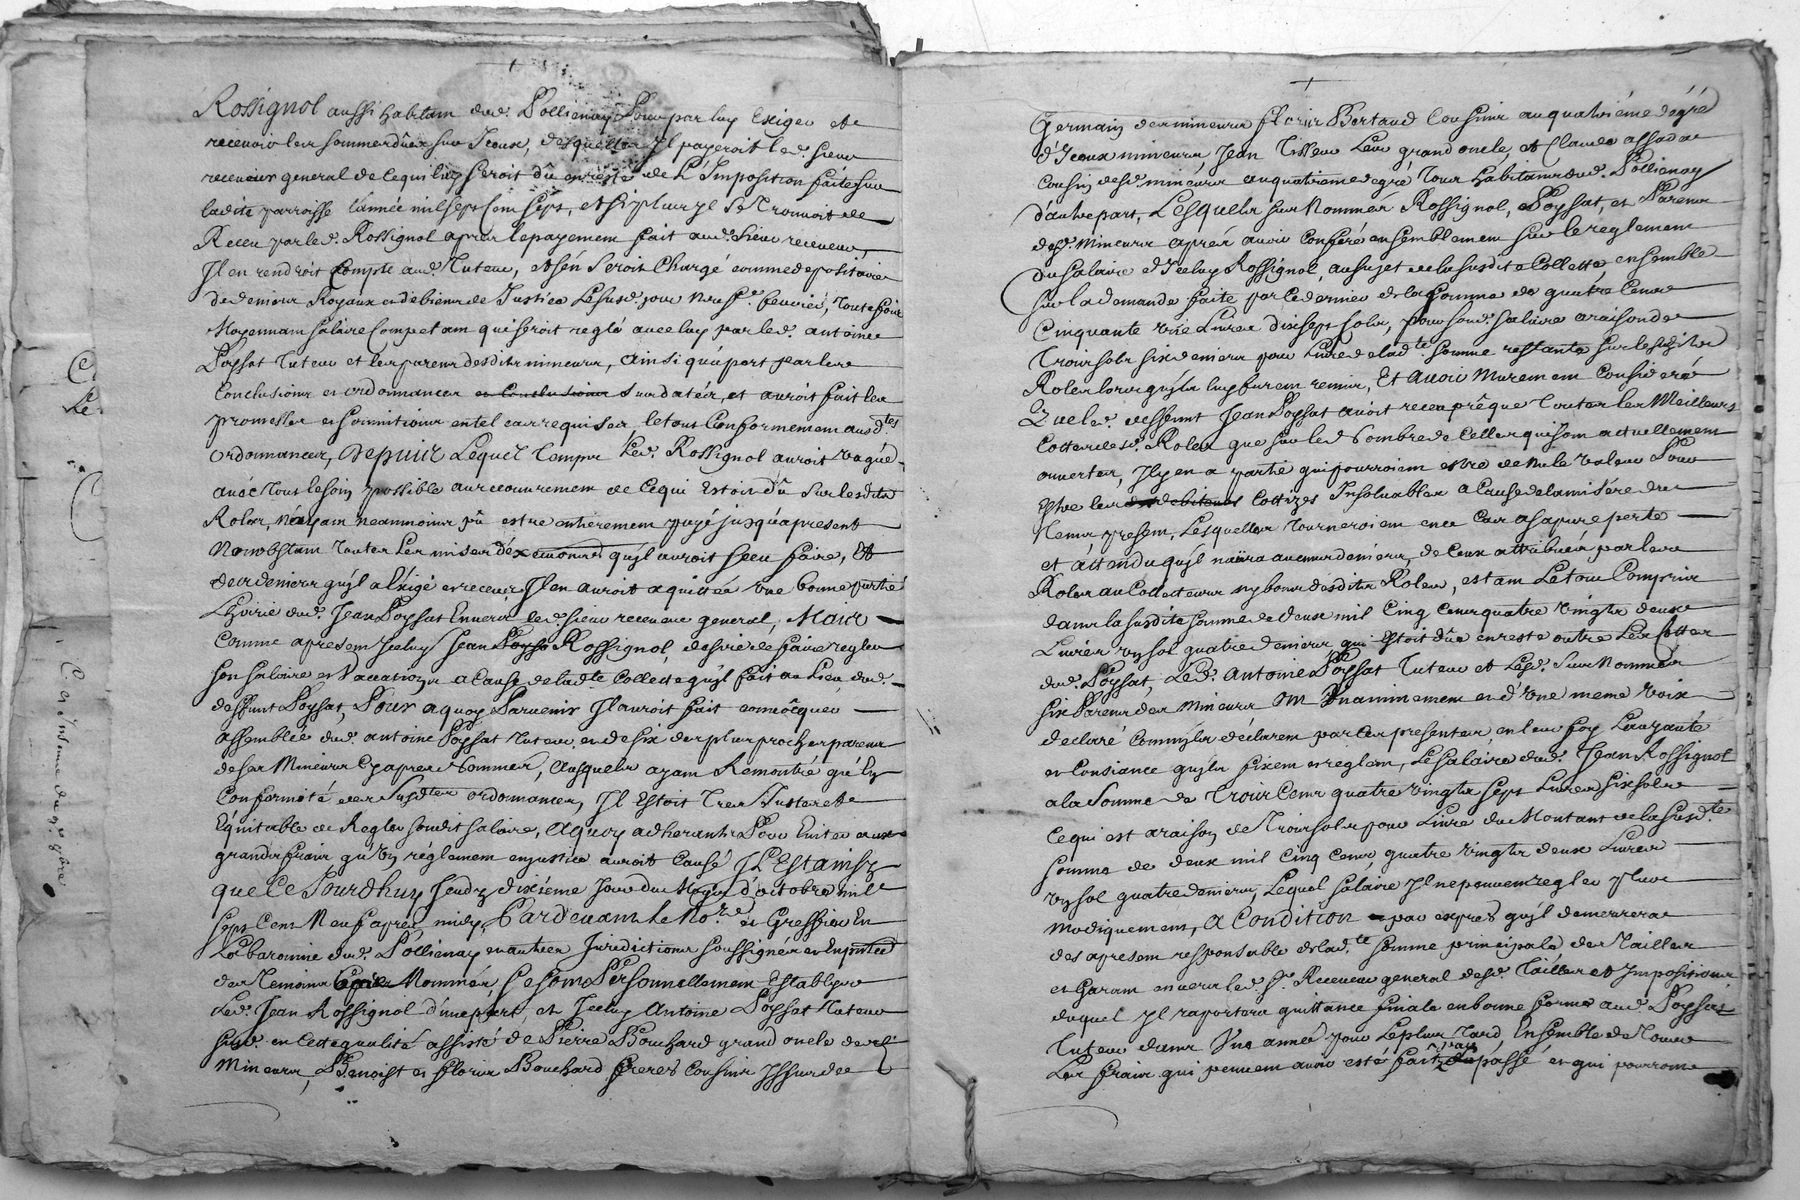 Rossignol aussi habitam dud. Pollienay Pour par luy Exiger et
recevoir les sommes dûes sur Iceux, desquelles Il payeroit led. sieur
receveur general de ce qui luy seroit dû en reste de L'Imposition faite sur
ladite parroisse l'année mil sept Cens sept, et si plus yl se trouvoit de
Receu par led. Rossignol apres le payement fait aud. sieur receveur
Il en rendroit Compte aud. Tuteur, et s'en seroit Chargé comme depositaire
de deniers Royaux et de biens de Justice Le susd. jour neuf.e fevrier, Toutesfois
Moyennam salaire Competam qui seroit reglé avec luy par led. antoine
Poyssat Tuteur et les parens desdits mineurs, ainsi qu'a port par les
Conclusions et ordonnances et Conclusions susdatées, et auroit fait les
promesses et soumitions en tel cas requises le tous Conformement ausd.tes
ordonnances, Depuis Lequel temps Led. Rossignol auroit vaqué
avec tous le soin possible au recouvremem de ce qui Estoit dû sur lesdits
Roles, n'ayam neanmoins pû estre entierement payé jusqu'apresent
Nonobstam toutes Les mises d'éxecutions qu'yl auroit sceu faire, Et
des deniers qu'yl a Exigé et receus Il en auroit aquittée une bonne partie
L'hoirie dud. Jean Poyssat Envers le d. sieur receveur general, Mais
comme apresen Iceluy Jean Poyssa Rossignol desire de faire regler
son salaire et Vaccations a Cause de lad.te Collecte qu'yl fait au Lieu dud.
deffunt Poyssat, Pour a quoy Parvenir Il auroit fait convôcquer
assemblée dud. antoine Poyssat tuteur, et de six des plus proches parens
de ses Mineurs Cy apres Nommés, Ausquels ayam Remontré qu'En
Conformité des susd.tes ordonnances, Il Estoit Tres Juste et
Equitable de Regler soudit salaire, A quoy adherants Pour Eviter aux
grands frais qu'un réglement en justice auroit Causé Il Est ainsy
que Ce Jourdhuy Jeudy dixième Jour du Moys d'octobre mil
sept Cens Neuf apres midy, Pardevant Le No.re et Greffier En
La baronnie dud. Pollienay et autres Juridictions soussigné et En presence
des Temoins Cy apres Nommés, se sont Personnellement Establys
Led. Jean Rossignol d'une part, et Iceluy Antoine Poyssat Tuteur
susd. en Cette qualité assisté de Pierre Bouchard grand oncle desd.
Mineurs, Benoist et Floris Bouchard freres Cousins Issus de
Germain des mineurs Floris Bertaud Cousin au quatriéme degré
d'Iceux mineurs, Jean Tisseur Leur grand oncle, et Claude
Cousin desd. mineurs au quatrieme degré Tous habitans dud. Pollienay
d'autre part, Lesquels susnommés Rossignol, Poyssat, et Parens
desd. Mineurs aprés avoir Conferé ensemblement sur le reglement
du salaire d'Iceluy Rossignol, au sujet de la susdite Collette, ensemble
sur la demande faite par Ce dernier de la somme de quatre Cens
Cinquante une Livres dix sept sols, pour soud. salaire a raison de
Trois sols six deniers pour Livre de lad.te somme restante sur lesdits
Roles lors qu'yls luy furem remis, Et avoir Murement Consideré
Que led. deffunt Jean Poyssat avoit receu presque toutes les Meilleurs
Cottes desd. Roles que sur led. Nombre de Celles qui sont actuellement
ouvertes, Il y en a partie qui pourroiem estre de nule valeur Pour
estre les debiteurs Cottizés Insolvables a Cause de la misére du
Tems presem, Lesquelles tourneroiem en ce Cas a sa pure perte
et attendu qu'yl n'aura aucuns deniers, de Ceux attribués par leurs
Roles au Collecteurs ny bons desdits Roles, estam Le tous Compris
dans la susdite somme de deux mil Cinq Cens quatre vingts deux
Livres un sol quatre deniers qui Estoit dûe en reste outre Les Cottes
dud. Poyssat, Led. Antoine Poyssat Tuteur et Lesd. susnommés
six Parens des Mineurs On Unanimement et d'Une meme voix
declaré Comm'yls déclarem par Ces presentes en leur foy Lauzanté
et Consiance qu'yls fixem et reglem, Le Salaire dud. Jean Rossignol
a la Somme de Trois Cens quatre vingts sept Livres six sols
Ce qui est a raison de Trois sols pour Livre du Montant de la susd.te
somme de deux mil Cinq Cens, quatre vingts deux Livres
un sol quatre deniers, Lequel salaire Il ne peuvem regler plus
modiquement, A Condition par exprés qu'yl demeurera
des apresem responsable de lad.te somme principale des Tailles
et Garam envers led. S.r Receveur general desd. Tailles et Impositions
duquel yl raportera quittance finale en bonne forme aud. Poyssat
Tuteur dans Une année pour Le plus Tard, Ensemble de tous
Les frais qui peuvem avoir esté fait par le passé et qui pourrons